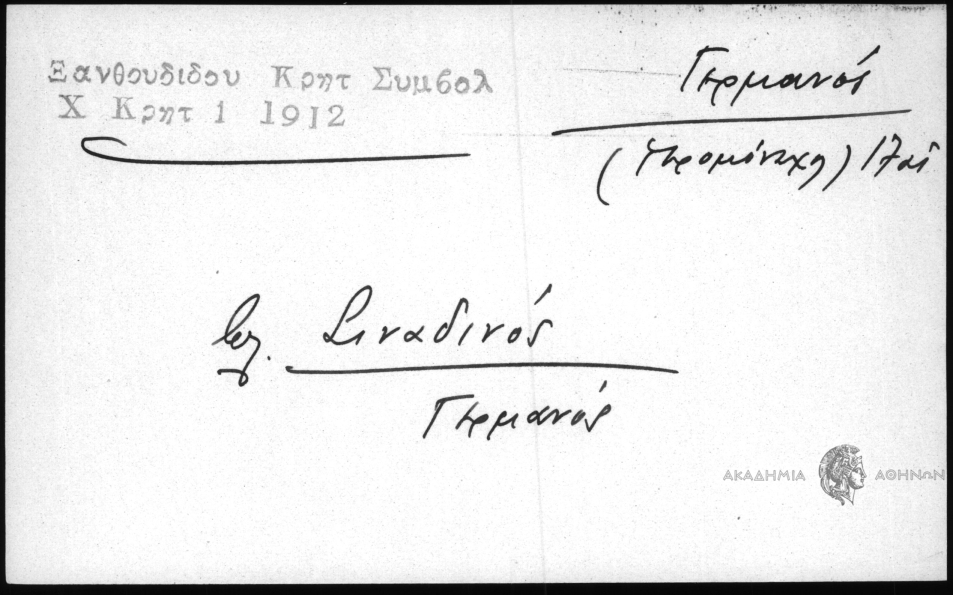 Ξανθουδιδου Κρητ Συμβολ
Χ Κρητ 1 1912
Γερμανός
(Ιερομόναχος) 17 αἰ
βλ. Σιναδινός
Γερμανός
ΑΚΑΔΗΜΙΑ ΑΘΗΝΩΝ